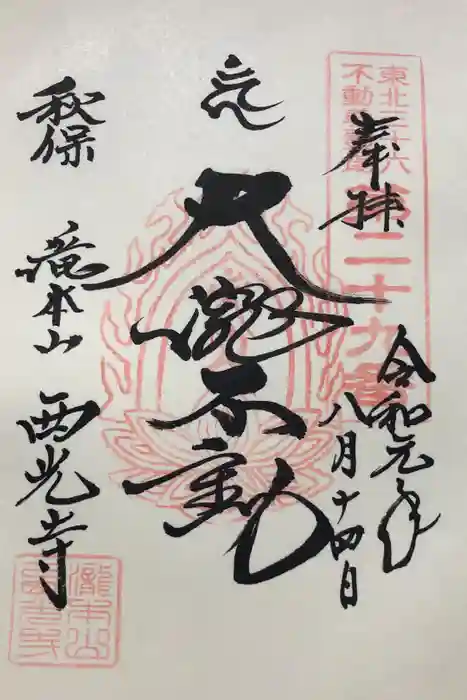 東北三十六
不動尊霊場
第二十九番
奉拝
令和元年
八月十四日
大瀧不動
秋保 滝本山 西光寺
瀧本山
西光寺